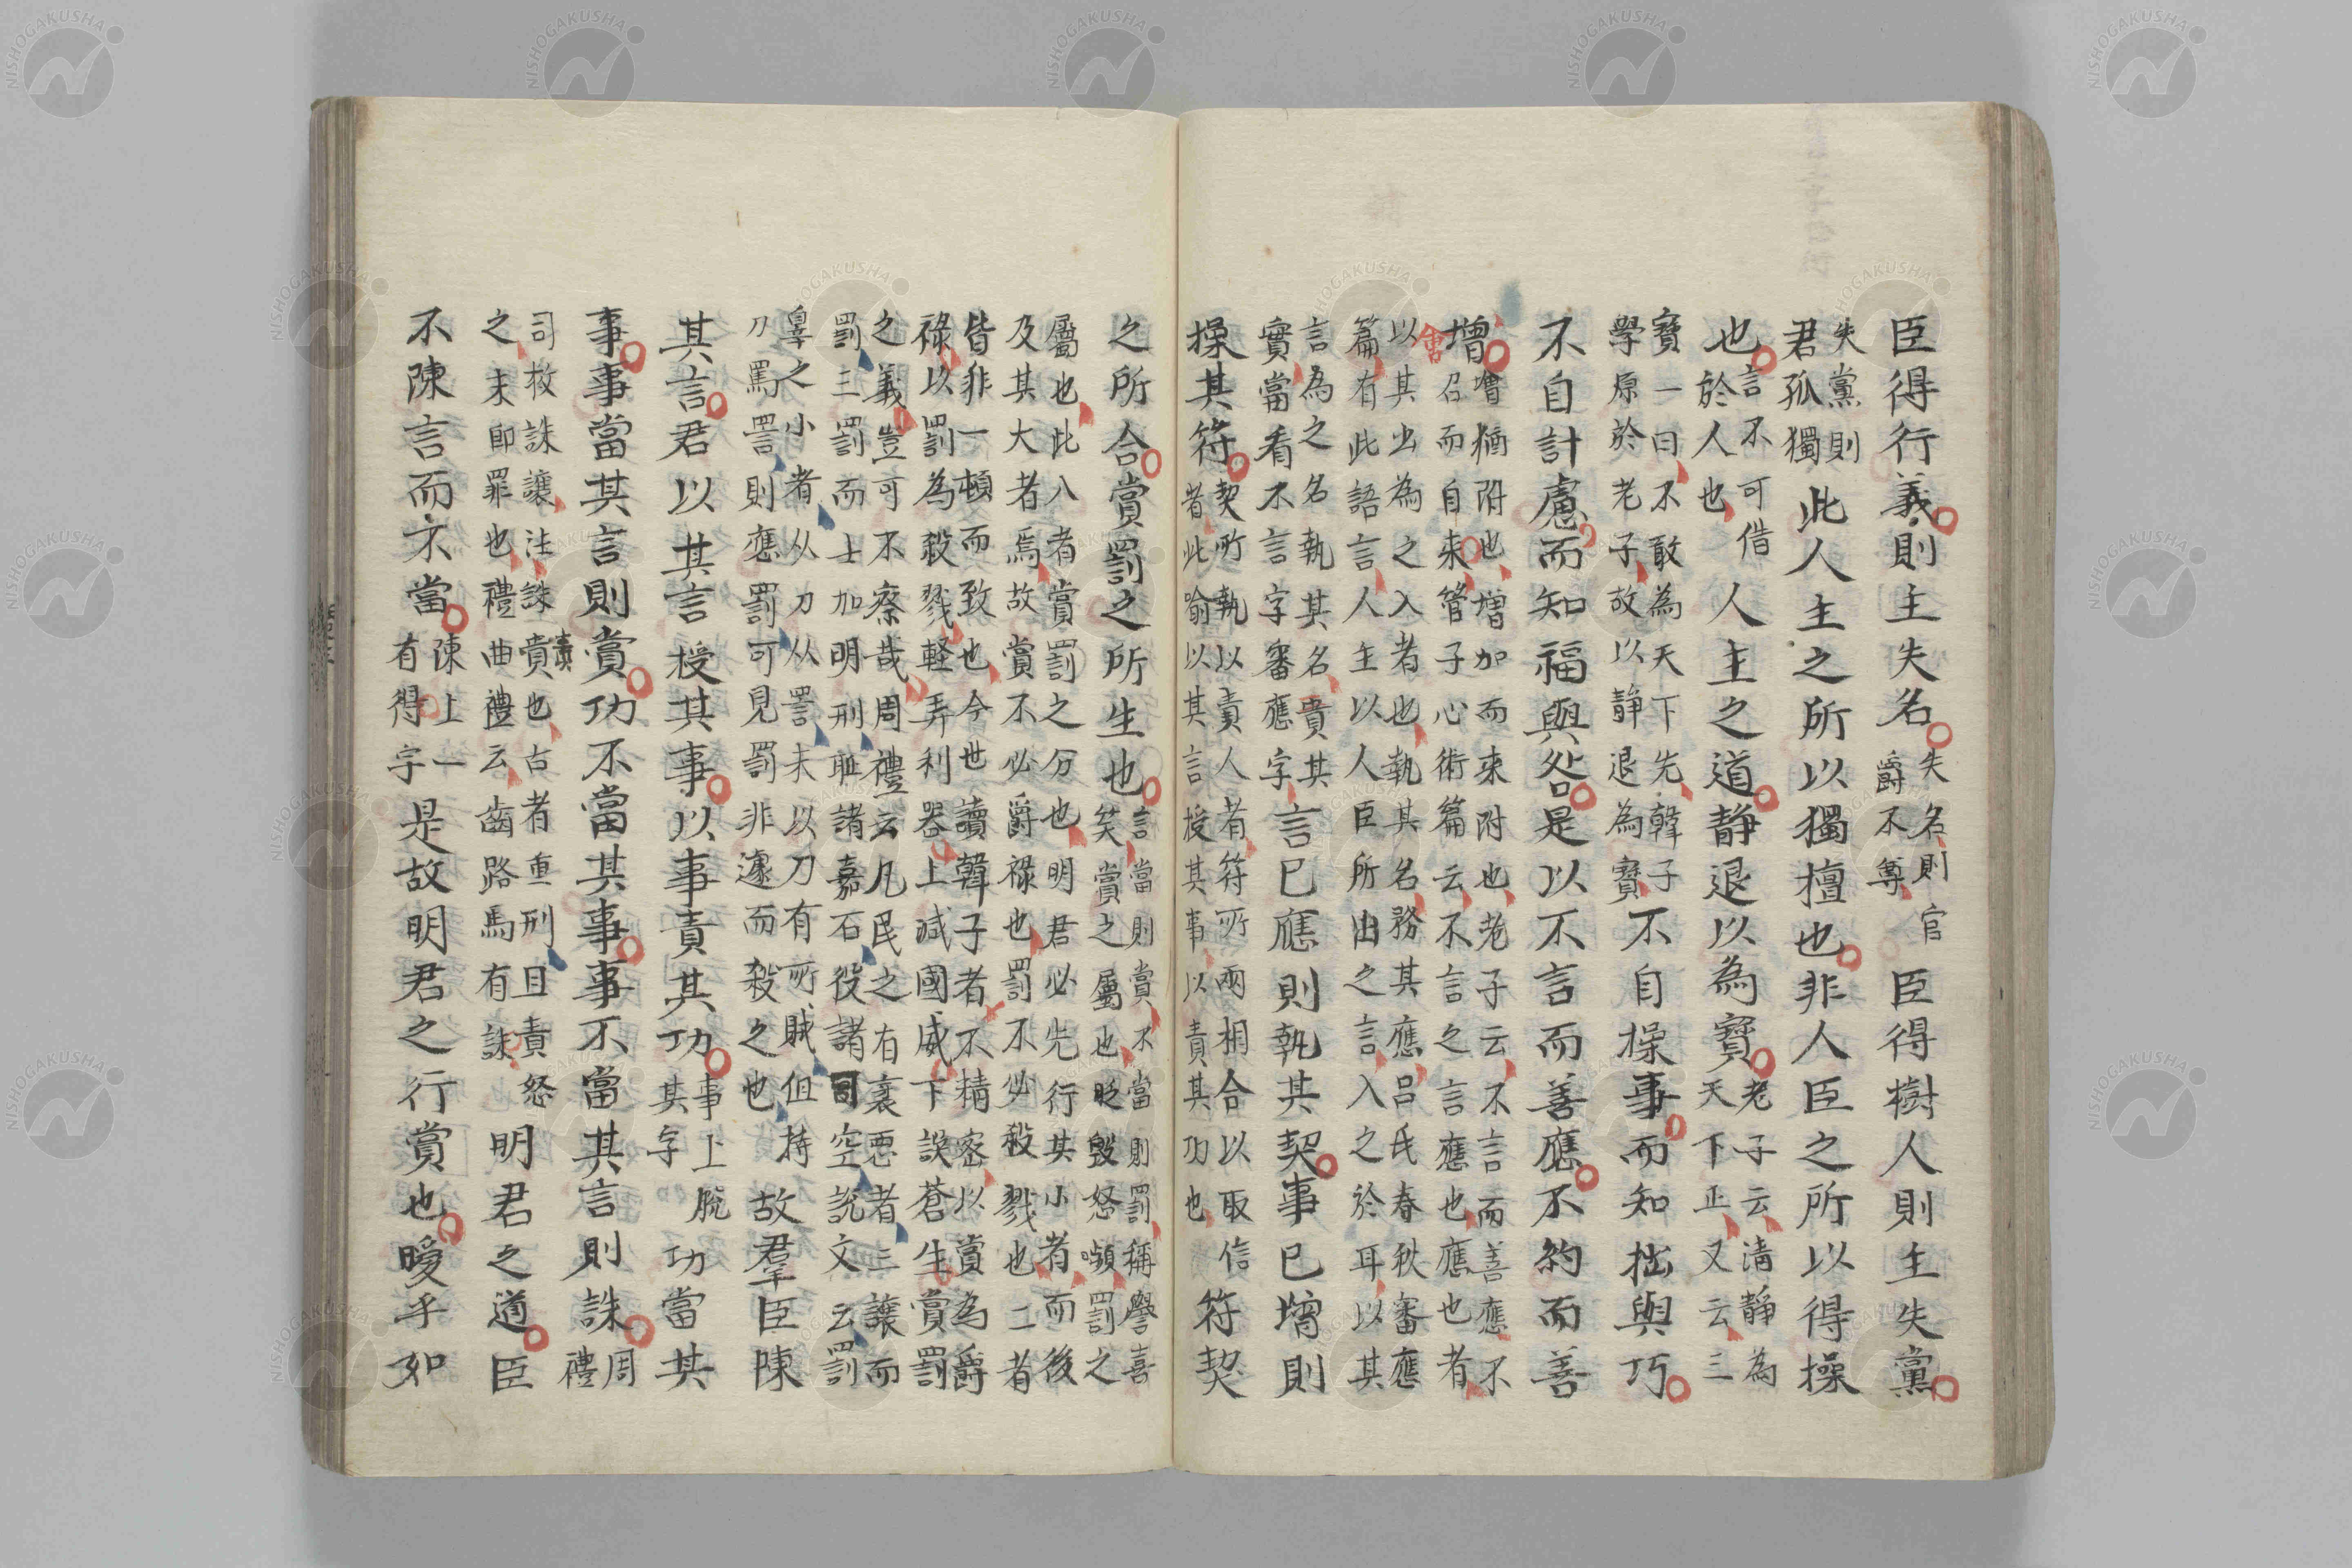 臣得行義則主失名失名則官
爵不尊臣得樹人則主失黨
失黨則
君孤獨此人主之所以獨擅也非人臣之所以得操
也言不可借
於人也人主之道靜退以為寶老子云清靜為
天下正又云三
寶一曰不敢為天下先韓子
學原於老子故以靜退為寶不自操事而知拙與巧
不自計慮而知福與咎是以不言而善應不約而善
增噌猶附也增加而来附也老子云不言而善應不
會
召而自来管子心術篇云不言之言應也應也者
以其出為之入者也執其名務其應呂氏春秋審應
篇有此語言人主以人臣所由之言入之於耳以其
言為之名執其名責其
實當看不言字審應字言已應則執其契事已增則
操其符契所執以責人者符所兩相合以取信
者此喻以其言授其事以責其功也符契
之所合賞罰之所生也言當則賞不當則罰稱譽喜
笑賞之屬也貶毀怒嚬罰之
屬也此八者賞罰之分也明君必先行其小者而後
及其大者焉故賞不必爵祿也罰不必殺戮也二者
皆非一頓而致也今世讀韓子者不精密以賞為爵
祿以罰為殺戮軽弄利器上滅國威下誤蒼生賞罰
之義豈可不察哉周禮云凡民之有衺惡者三讓而
罰三罰而士加明刑耻諸嘉石役諸司空說文云罰
辠之小者从刀从詈未以刀有所賊但持
刀罵詈則應罰可見罰非遽而殺之也故羣臣陳
其言君以其言授其事以事責其功事上脫
其字功當其
事事當其言則賞功不當其事事不當其言則誅周
禮
司救誅讓注誅責也古者重刑且責怒
責
之未即罪也禮曲禮云齒路馬有誅明君之道臣
不陳言而不當陳上一
有得字是故明君之行賞也曖乎如